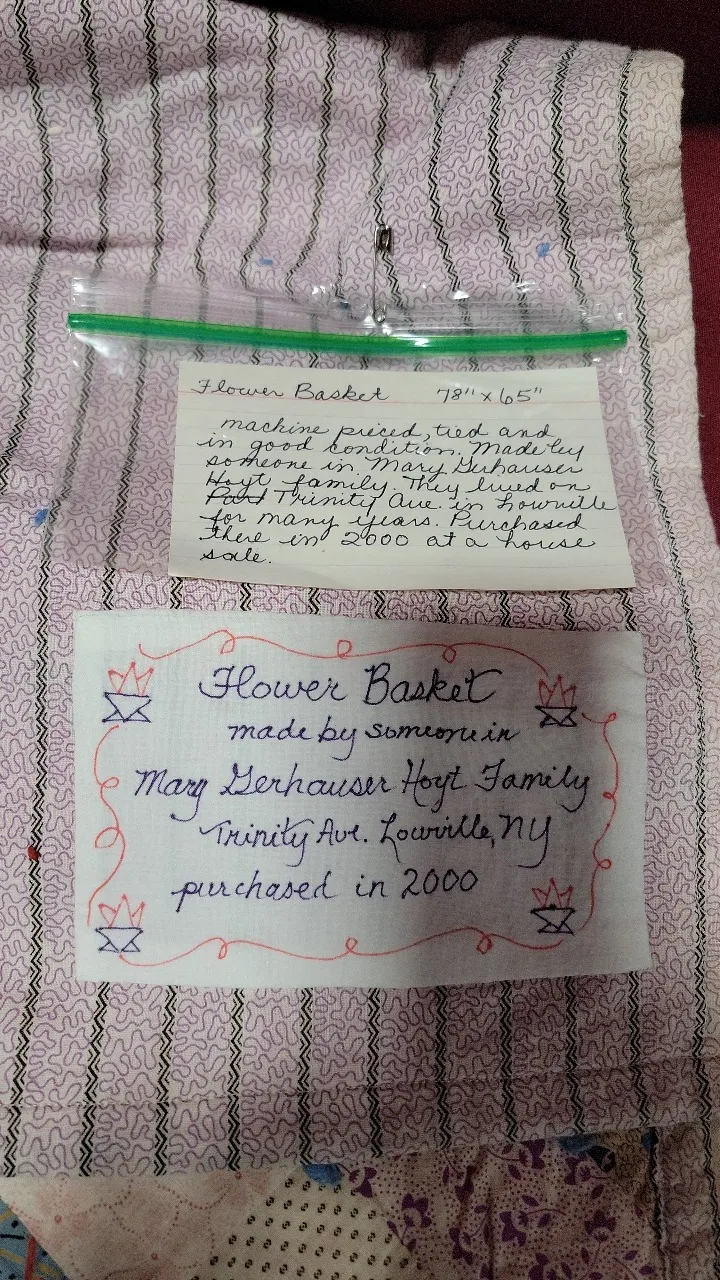 Flower Basket 78" x 65"
machine pieced, tied and
in good condition. Made by
someone in Mary Gerhauser
Hoyt family. They lived on
Park Trinity Ave. in Lowville
for many years. Purchased
there in 2000 at a house
sale.
Flower Basket
made by someone in
Mary Gerhauser Hoyt Family
Trinity Ave. Lowville, NY
purchased in 2000